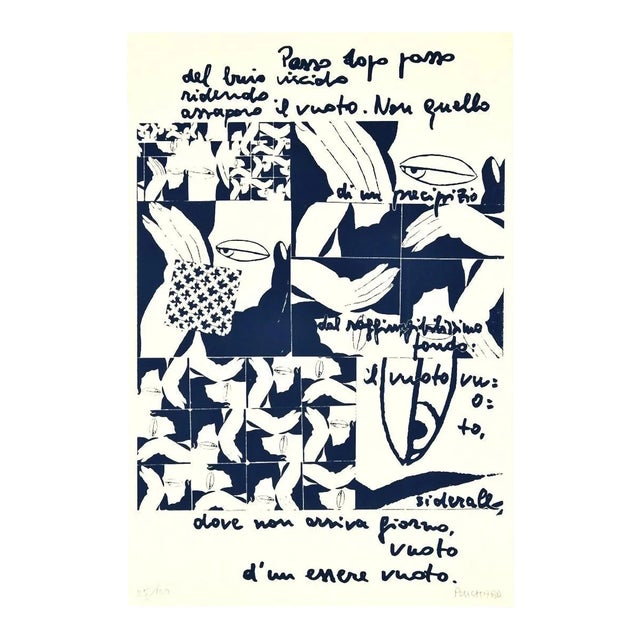 Passo dopo passo
del buio viscido
ridendo
assaporo il vuoto. Non quello
di un precipizio
dal raggiungibilissimo
fondo:
il vuoto vu=
o=
to,
siderale,
dove non arriva giorno,
vuoto
d'un essere vuoto.